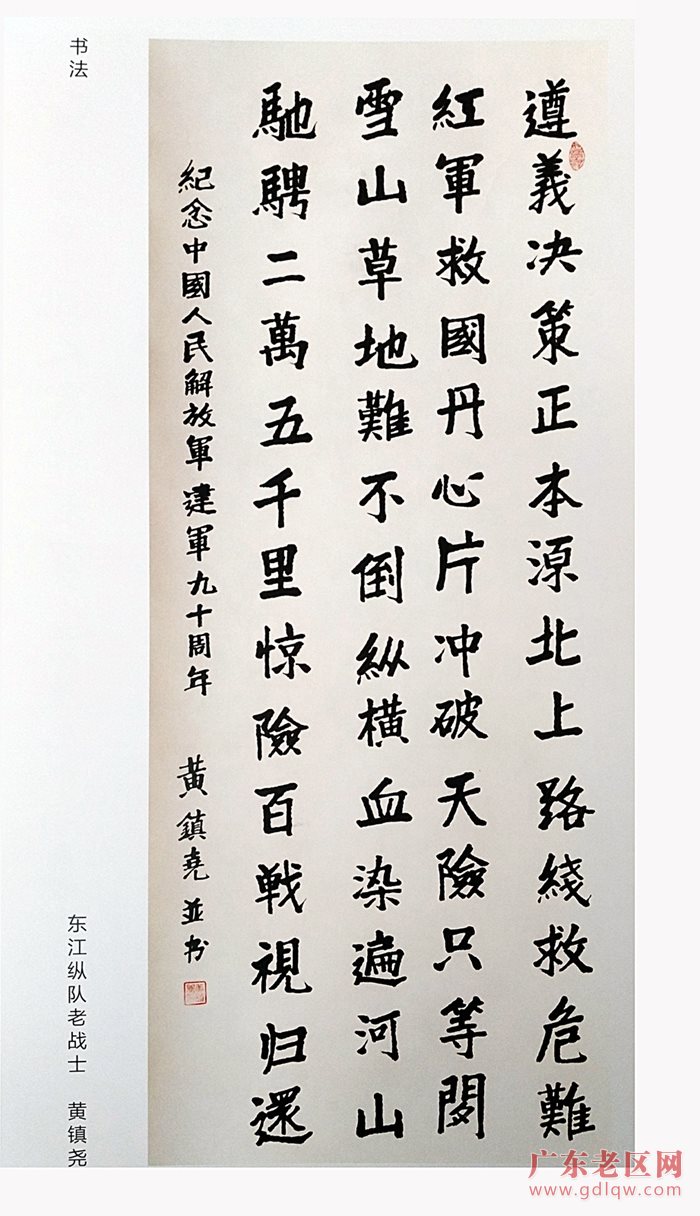 書法
遵義决策正本源北上路綫救危難
紅軍救國丹心片冲破天險只等閿
雪山草地難不倒縱橫血染遍河山
馳騁二萬五千里惊險百戰視归還
紀念中國人民解放軍建軍九十周年 黄鎮堯並书
东江纵队老战士 黄镇尧
广东老区网
www.gdlqw.com